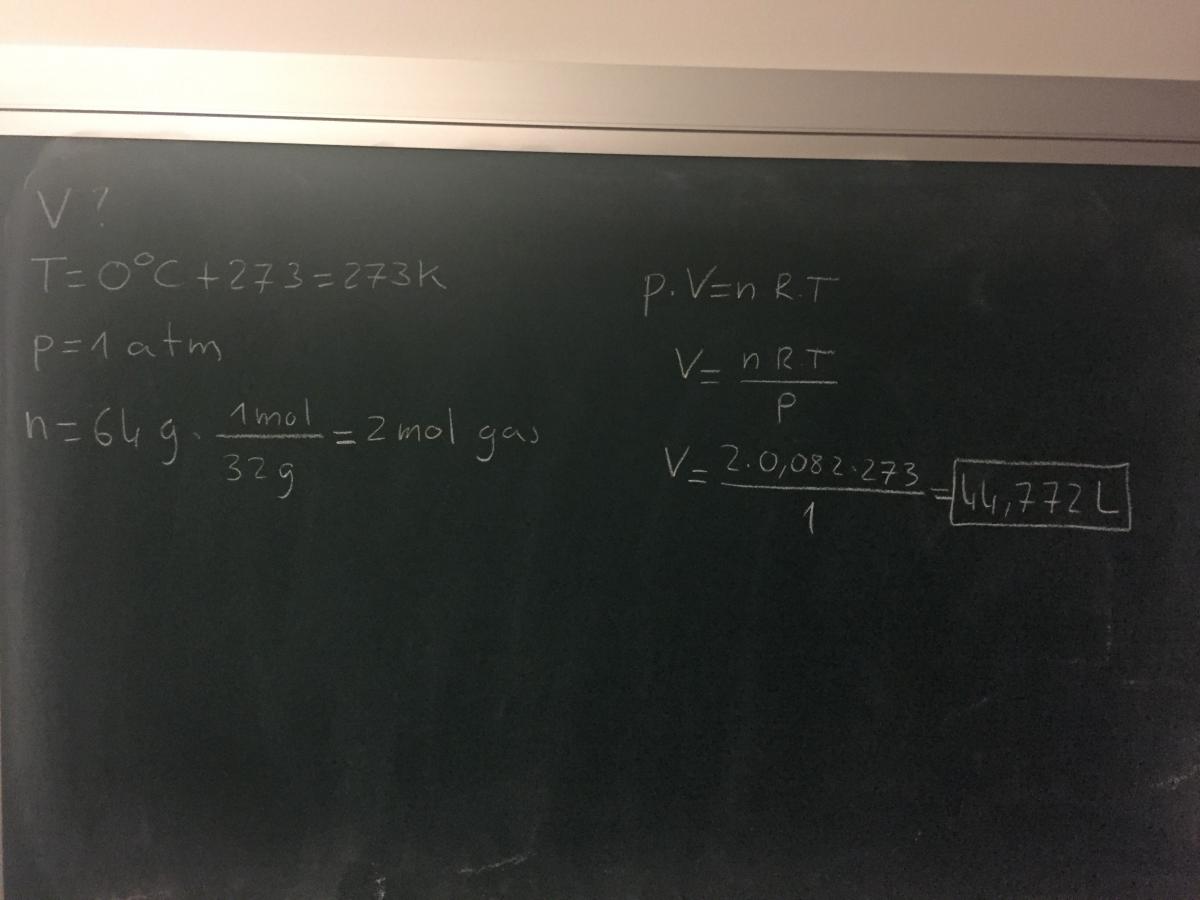 V?
T=0°C+273=273K
p=1 atm
n=64 g · 1mol/32g = 2 mol gas
p.V=n R.T
V= n R.T/P
V= 2·0,082·273/1 = 44,772 L